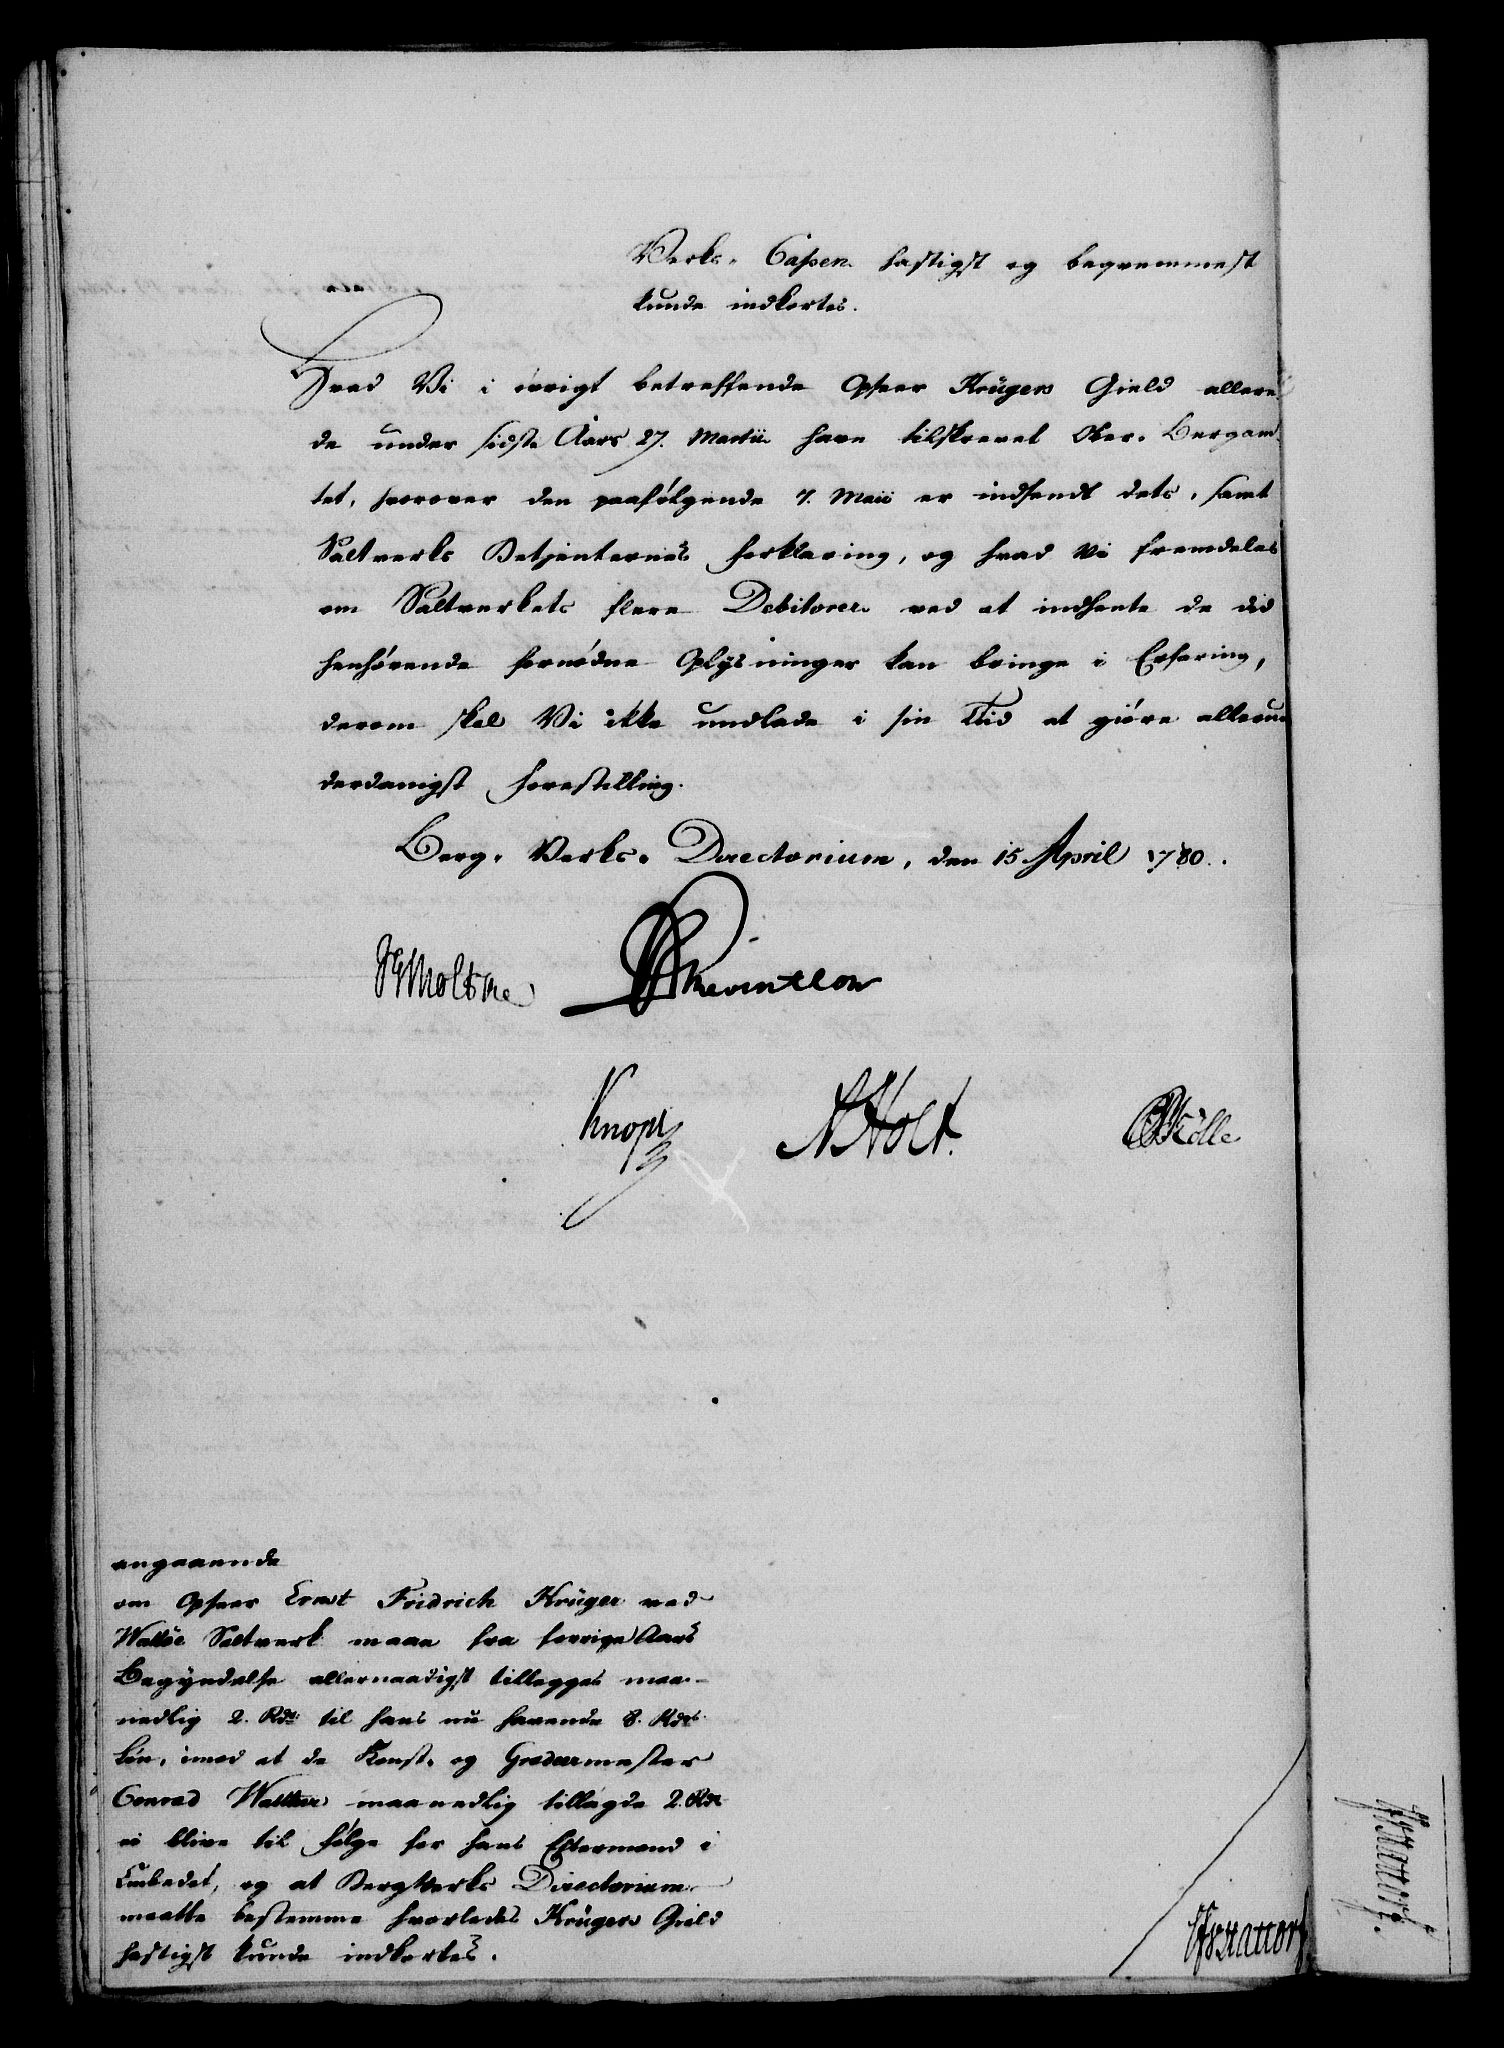 Verks-Cassen hastigst og beqvemmest
kunde indkortes.
Hvad Vi i øvrigt betreffende Opseer Krügers Gield allere-
de under sidste Aars 27. Martii have tilskrevet Ober-Bergam-
tet, hvorover den paafølgende 7. Maii er indsendt dets, samt
Saltverks Betjenternes Forklaring, og hvad Vi fremdeles
om Saltverkets flere Debitorer ved at indhente de did
henhørende fornødne Oplysninger kan bringe i Erfaring,
derom skal Vi ikke undlade i sin Tiid at giøre allerun
derdanigst Forestilling.
Berg-Verks-Directorium, den 15 April 1780.
Moltke Reventlow
Knoph Holt
angaaende
om Opseer Ernst Fridrich Krüger ved
Walløe Saltverk maae fra forrige Aars
Begyndelse allernaadigst tillegges maa-
nedlig 2. Rdr til hans nu havende 8. Rdrs
Løn, imod at de Konst- og Gradeermester
Conrad Walther maanedlig tillagde 2. Rdr
ei blive til følge for hans Eftermand i
Embedet, og at BergVerks Directorium
maatte bestemme hvorledes Krügers Gield
hastigst kunde indkortes.